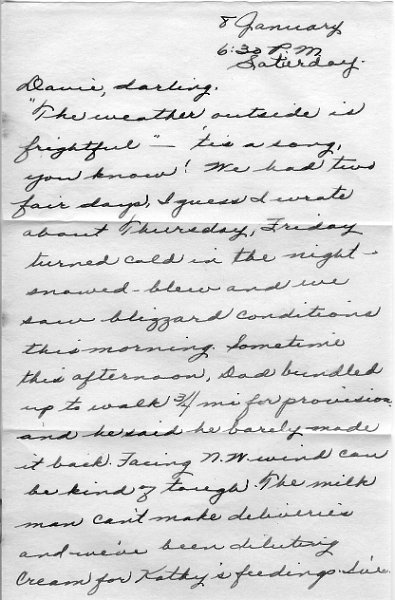 8 January
6:30 P.M
Saturday.
Davie, darling.
"The weather outside is
frightful" — 'tis a song,
you know! We had two
fair days, I guess I wrote
about Thursday, Friday
turned cold in the night -
snowed - blew and we
saw blizzard conditions
this morning. Sometime
this afternoon, Dad bundled
up to walk 3/4 mi for provision
and he said he barely made
it back. Facing N.W. wind can
be kind of tough. The milk
man can't make deliveries
and we've been diluting
cream for Kathy's feedings.